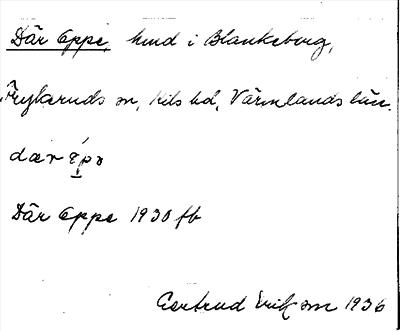 Där Oppe, hmd i Blankeborg,
Frykeruds sn, Kils hd, Värmlands län.
Där Oppe 1930 fb
Gertrud Eriksson 1936